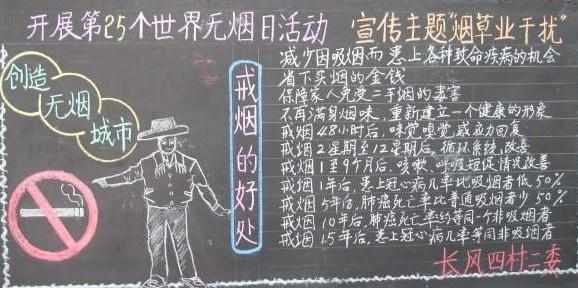 开展第25个世界无烟日活动 宣传主题"烟草业干扰"
创造
无烟
城市
戒烟的好处
减少因吸烟而患上各种致命疾病的机会
省下买烟的金钱
保障家人免受二手烟的毒害
不再满身烟味,重新建立一个健康的形象
戒烟48小时后,味觉嗅觉敏感力回复
戒烟2星期至12星期后,循环系统改善
戒烟1至9个月后,咳嗽、呼吸短促情况改善
戒烟1年后,患上冠心病几率比吸烟者低50%
戒烟5年后,肺癌死亡率比普通吸烟者少50%
戒烟10年后,肺癌死亡率约等同一个非吸烟者
戒烟15年后,患上冠心病几率等同非吸烟者
长风四村二委